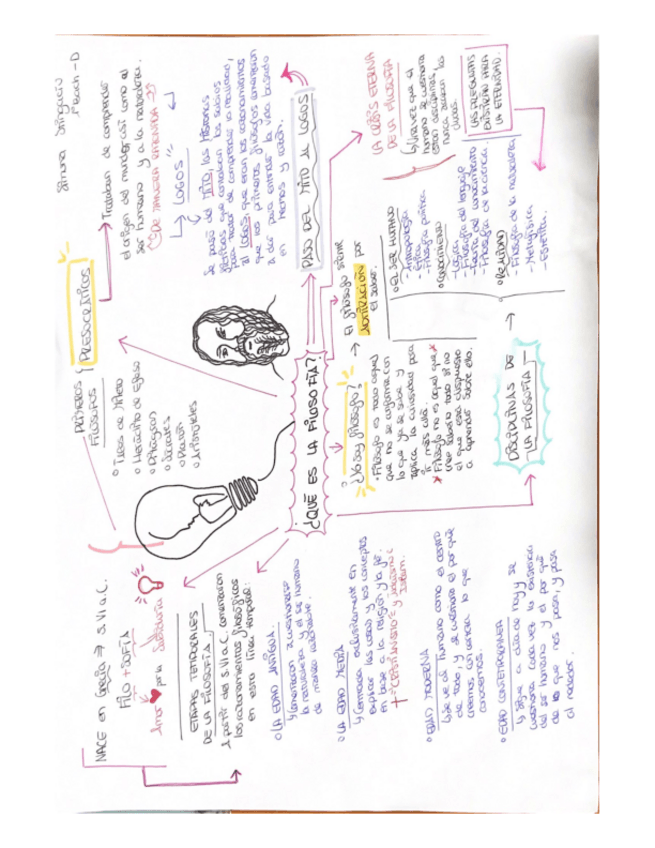 Simona
1º Bach - D
NACE en Grecia → S. VI a.C.
FILO + SOFÍA
Amor ❤ por la sabiduría
PRIMEROS
FILÓSOFOS
◦ Tales de Mileto
◦ Heráclito de Efeso
◦ Pitágoras
◦ Sócrates
◦ Platón
◦ Aristóteles
y PRESOCRÁTICOS
Trataban de comprender
el origen del mundo así como el
ser humano y a la naturaleza.
DE MANERA RAZONADA
LOGOS
Se pasó del MITO, las historias
que contaban los sabios
para tratar de comprender la realidad,
al LOGOS, que eran los razonamientos
que los primeros filósofos comenzaron
a dar para entender la vida basado
en hechos y razón.
PASO DEL MITO AL LOGOS
¿QUÉ ES LA FILOSOFÍA?
ETAPAS TEMPORALES
DE LA FILOSOFÍA.
A partir del S. VI a.C. comenzaron
los razonamientos filosóficos
en esta línea temporal:
◦ LA EDAD ANTIGUA.
Comenzaron a cuestionarse
la naturaleza y el ser humano
de manera razonable.
◦ LA EDAD MEDIA
explicar las cosas y los conceptos
en base a la religión y la fe.
+ "CRISTIANISMO" y judaísmo e
Islam.
◦ EDAD MODERNA
Se ve al humano como el centro
de todo, y se cuestiona el por qué
creemos con certeza lo que
conocemos.
◦ EDAD CONTEMPORÁNEA
Sigue a día de hoy y se
cuestiona cada vez la existencia
del ser humano y el por qué
de lo que nos pasa, y pasa
al rededor.
¿Yo soy filósofo?
· Filósofo es todo aquel
que no se conforma con
lo que ya se sabe y
aplica la curiosidad para
ir más allá.
× Filósofo no es aquel que
cree saberlo todo si no
el que está dispuesto
a aprender sobre ello.
→ El filósofo siente
ADMIRACIÓN por
el saber.
LA CRISIS ETERNA
DE LA FILOSOFÍA
Una vez que el
humano se cuestiona
estas disciplinas,
nunca acaban las
dudas.
LAS PREGUNTAS
EXISTIRÁN PARA
LA ETERNIDAD.
DISCIPLINAS DE
LA FILOSOFÍA
→
◦ EL SER HUMANO
- Antropología
- Ética
- Filosofía política
◦ CONOCIMIENTO
- Lógica
- Filosofía del lenguaje
- Teoría del conocimiento
- Filosofía de la ciencia.
◦ REALIDAD
- Filosofía de la naturaleza
- Metafísica
- Estética.